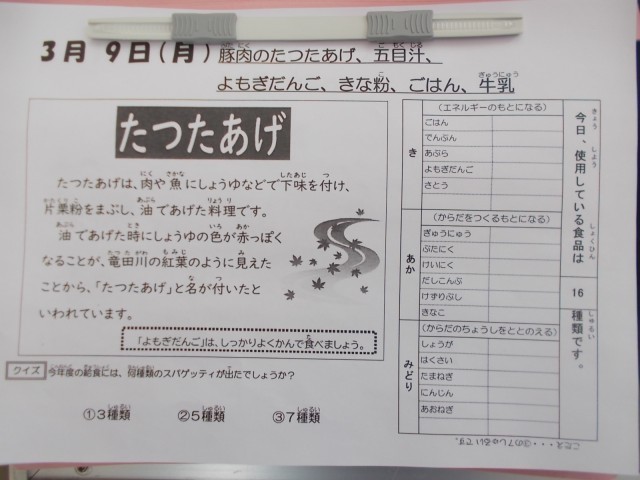 3月 9日(月) 豚肉のたつたあげ、五目汁、
よもぎだんご、きな粉、ごはん、牛乳
たつたあげ
たつたあげは、肉や魚にしょうゆなどで下味を付け、
片栗粉をまぶし、油であげた料理です。
油であげた時にしょうゆの色が赤っぽく
なることが、竜田川の紅葉のように見えた
ことから、「たつたあげ」と名が付いたと
いわれています。
「よもぎだんご」は、しっかりよくかんで食べましょう。
クイズ 今年度の給食には、何種類のスパゲッティが出たでしょうか?
①3種類 ②5種類 ③7種類
き
(エネルギーのもとになる)
ごはん
でんぷん
あぶら
よもぎだんご
さとう
あか
(からだをつくるもとになる)
ぎゅうにゅう
ぶたにく
けいにく
だしこんぶ
けずりぶし
きなこ
みどり
(からだのちょうしをととのえる)
しょうが
はくさい
たまねぎ
にんじん
あおねぎ
今日、使用している食品は
16
種類です。
こたえ・・・③の7しゅるいです。